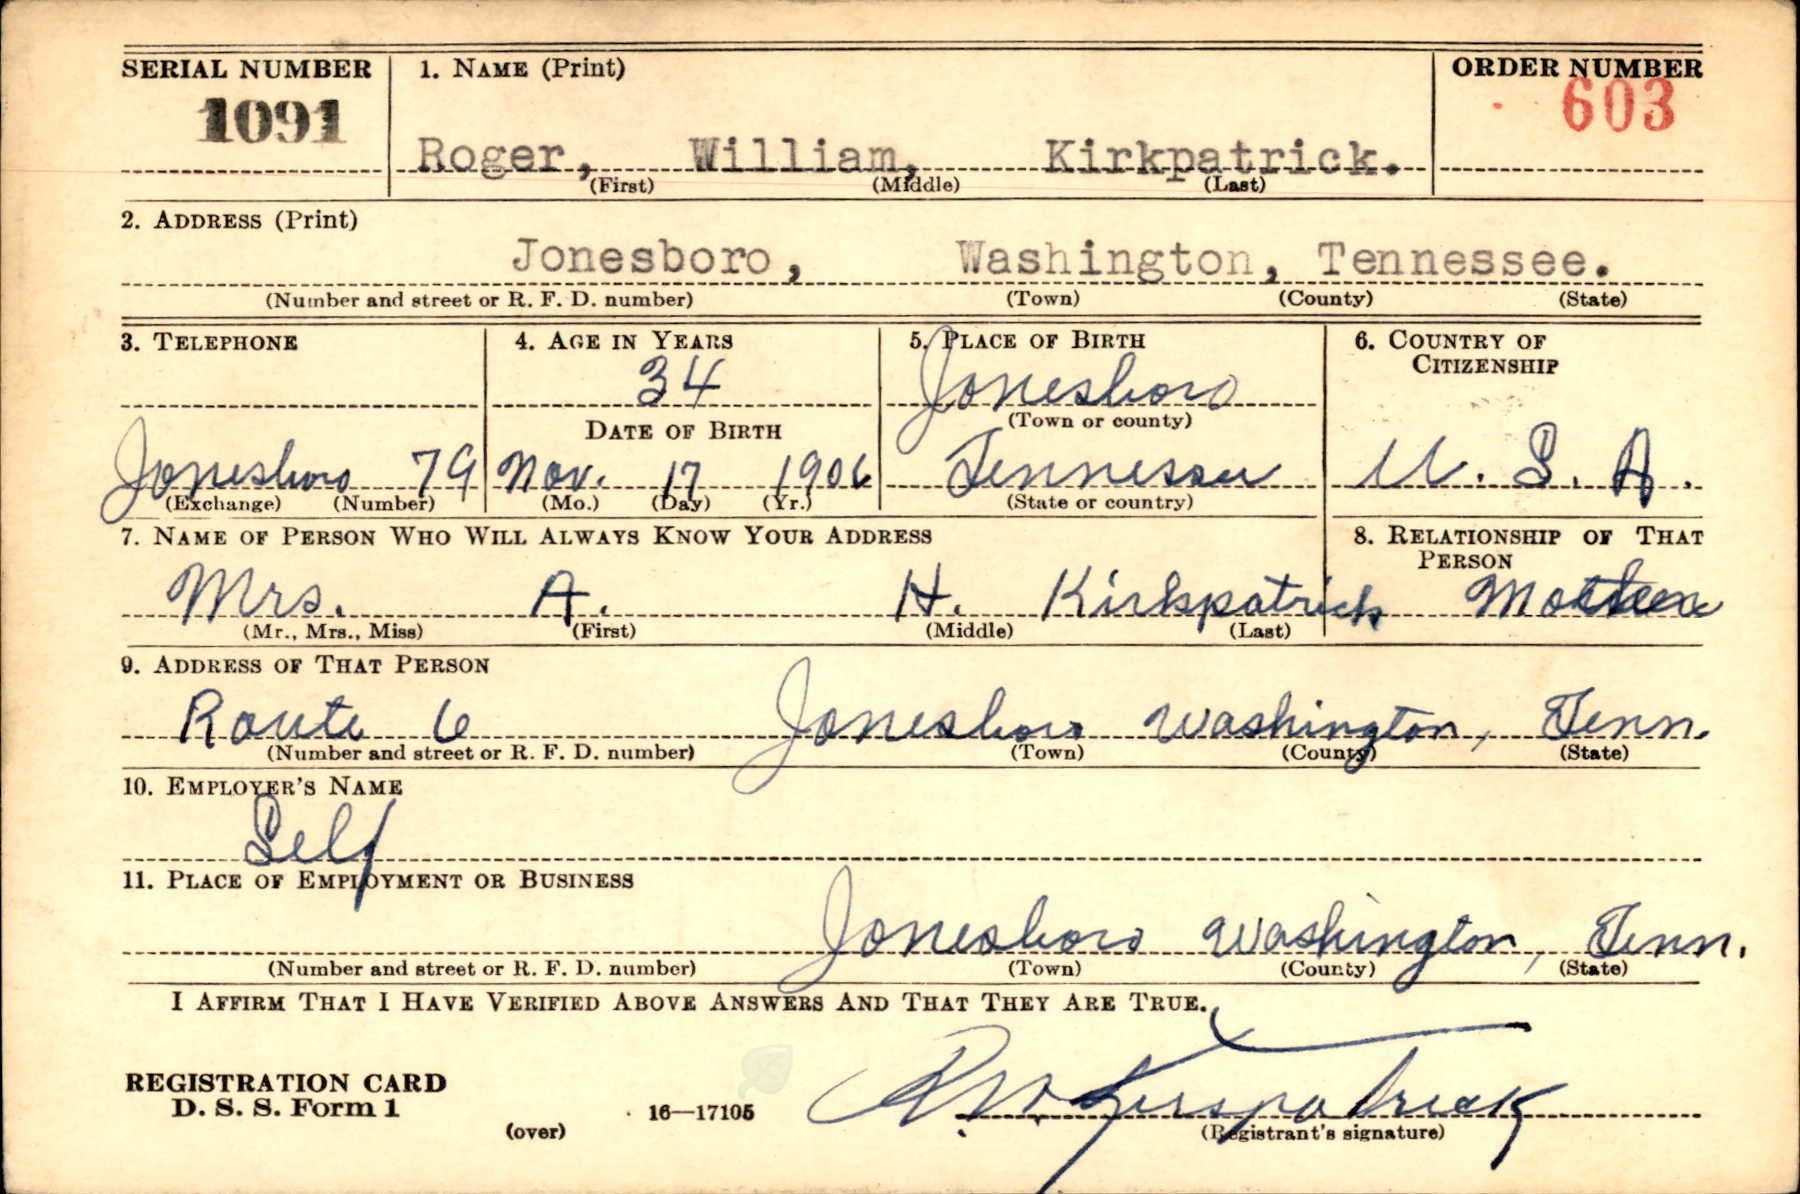 SERIAL NUMBER 1. NAME (Print) ORDER NUMBER
1091 603
Roger, William, Kirkpatrick.
(First) (Middle) (Last)
2. ADDRESS (Print)
Jonesboro, Washington, Tennessee.
(Number and street or R. F. D. number) (Town) (County) (State)
3. TELEPHONE 4. AGE IN YEARS 5. PLACE OF BIRTH 6. COUNTRY OF
CITIZENSHIP
34 Jonesboro
(Town or county)
DATE OF BIRTH
Jonesboro 79 Nov. 17 1906 Tennessee U. S. A.
(Exchange) (Number) (Mo.) (Day) (Yr.) (State or country)
7. NAME OF PERSON WHO WILL ALWAYS KNOW YOUR ADDRESS 8. RELATIONSHIP OF THAT
PERSON
Mrs. A. H. Kirkpatrick Mother
(Mr., Mrs., Miss) (First) (Middle) (Last)
9. ADDRESS OF THAT PERSON
Route 6 Jonesboro Washington, Tenn.
(Number and street or R. F. D. number) (Town) (County) (State)
10. EMPLOYER'S NAME
Self
11. PLACE OF EMPLOYMENT OR BUSINESS
Jonesboro Washington, Tenn.
(Number and street or R. F. D. number) (Town) (County) (State)
I AFFIRM THAT I HAVE VERIFIED ABOVE ANSWERS AND THAT THEY ARE TRUE.
REGISTRATION CARD
D. S. S. Form 1 16—17105 R. W. Kirkpatrick
(over) (Registrant's signature)